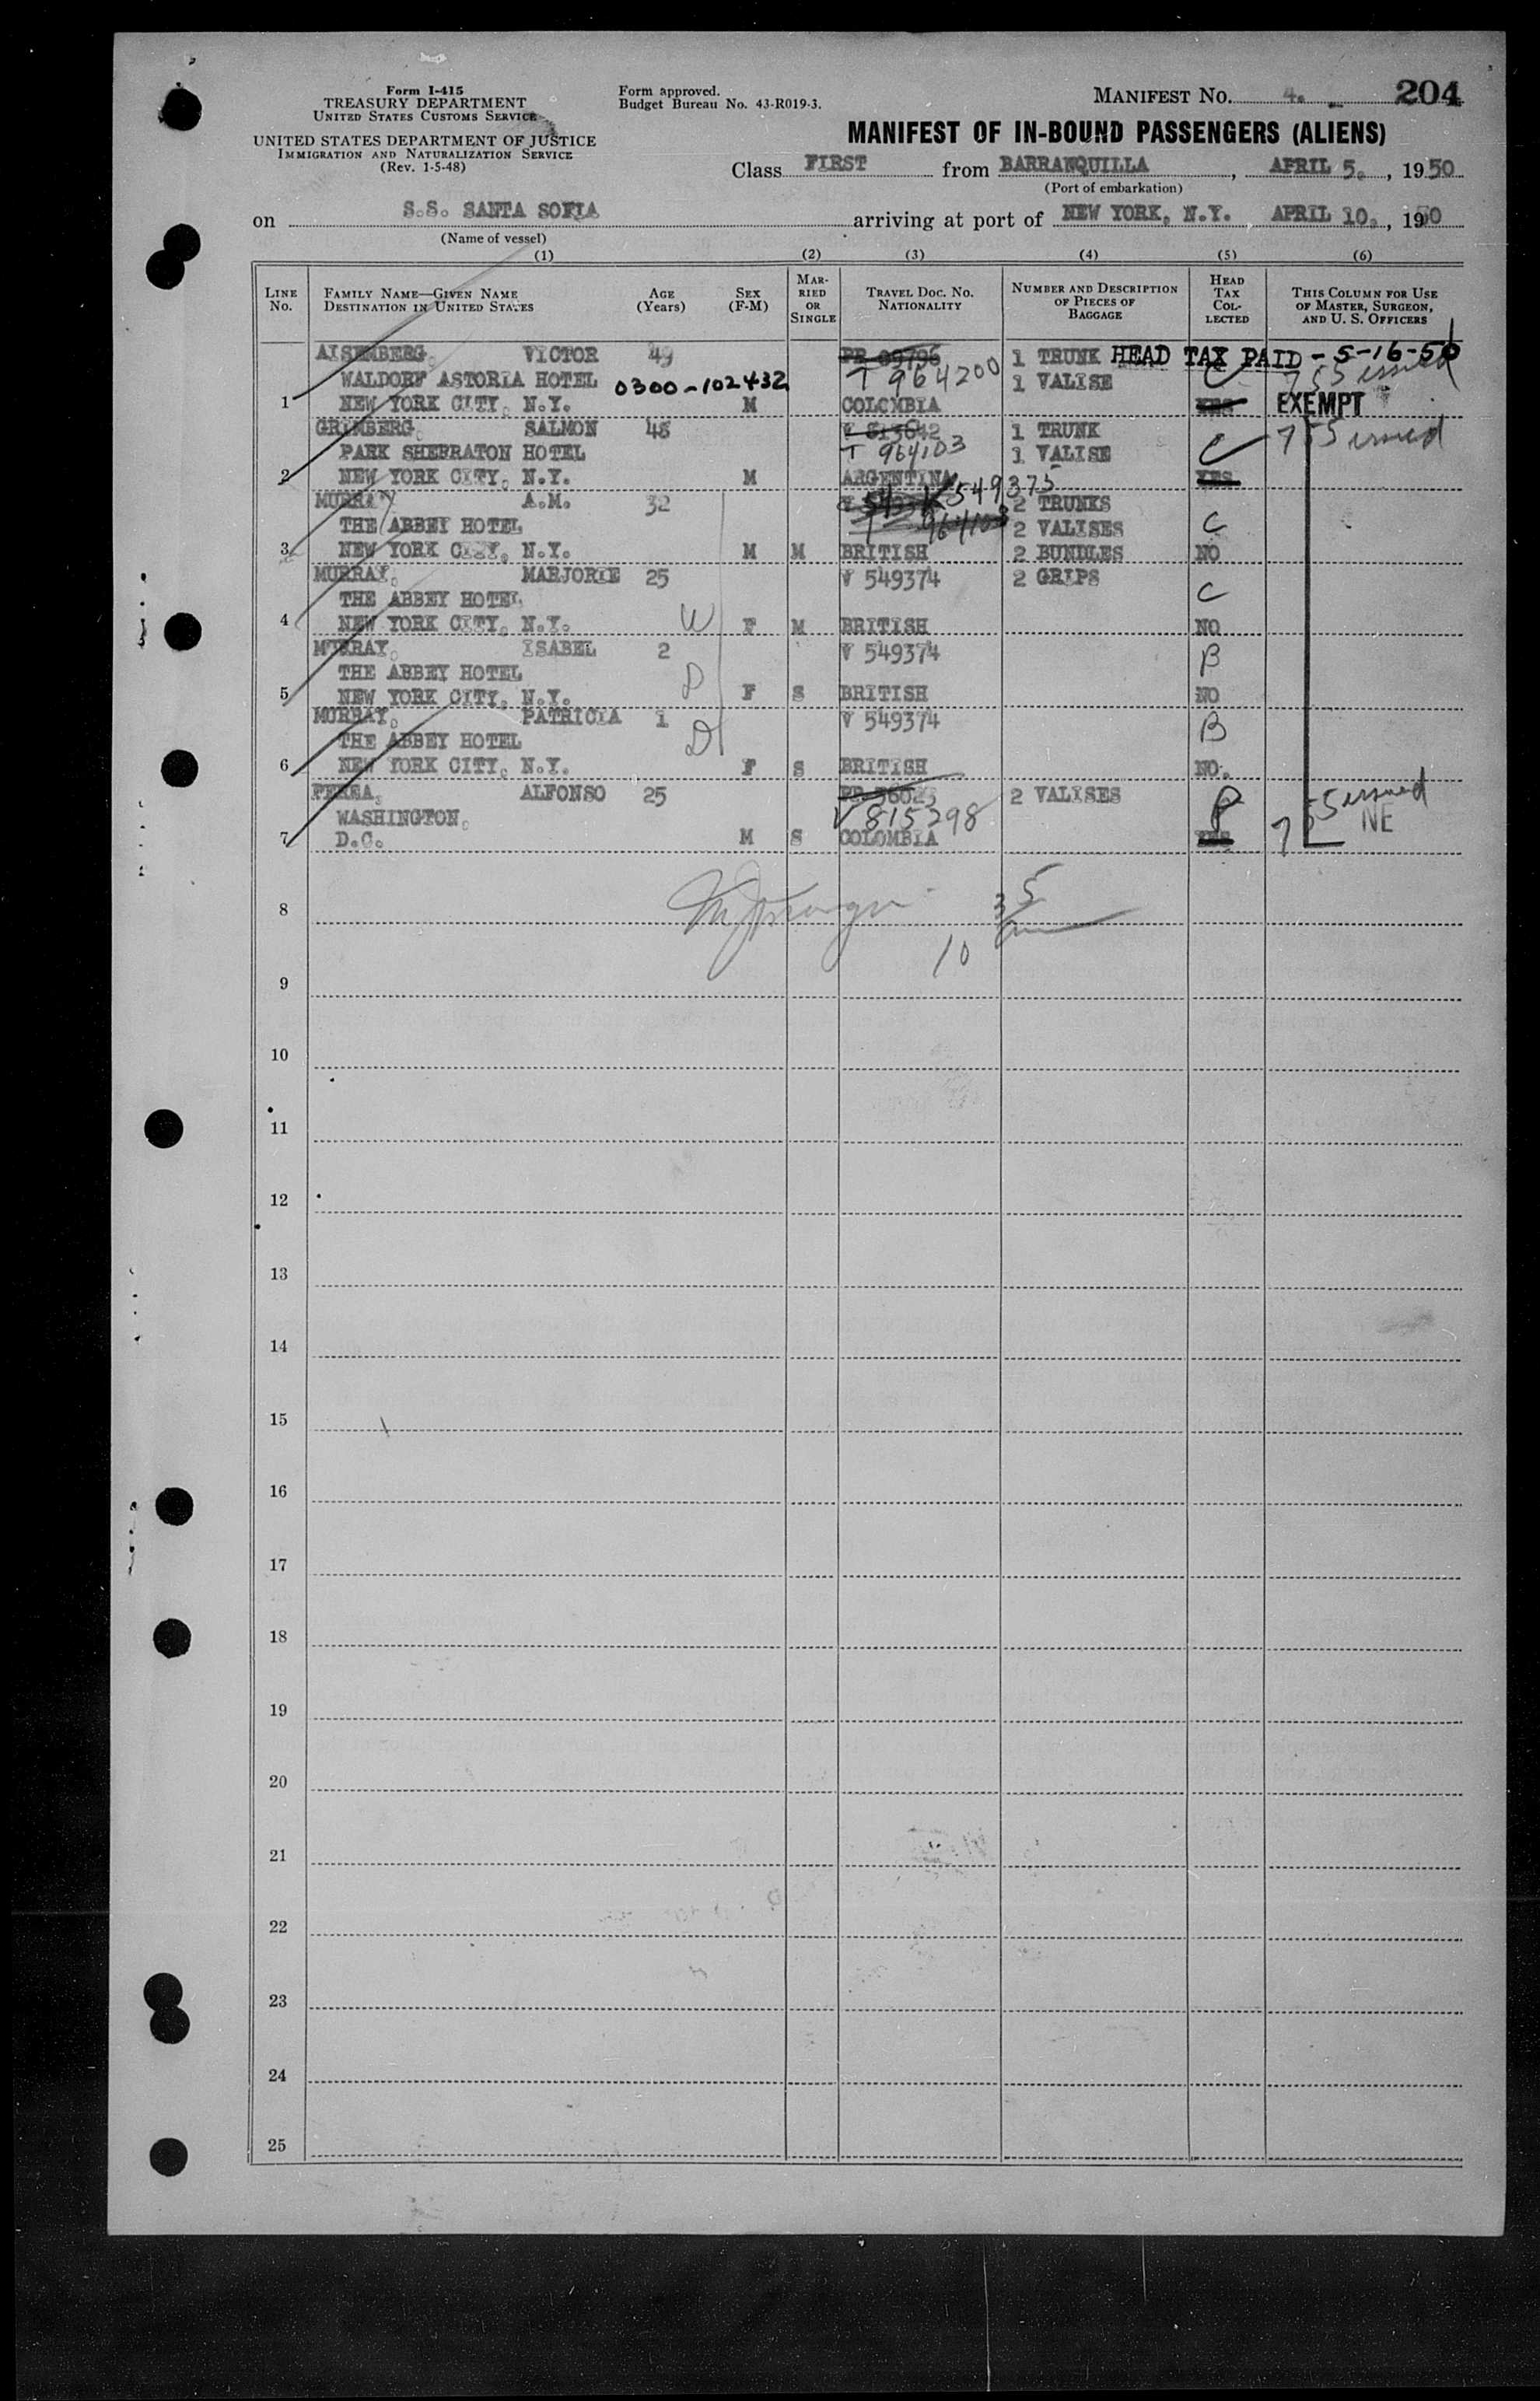 Form I-415
TREASURY DEPARTMENT
UNITED STATES CUSTOMS SERVICE
UNITED STATES DEPARTMENT OF JUSTICE
IMMIGRATION AND NATURALIZATION SERVICE
(Rev. 1-5-48)
Form approved.
Budget Bureau No. 43-R019-3.
MANIFEST No. 4. 204
MANIFEST OF IN-BOUND PASSENGERS (ALIENS)
Class FIRST from BARRANQUILLA, APRIL 5., 1950
(Port of embarkation)
on S.S. SANTA SOFIA arriving at port of NEW YORK, N.Y. APRIL 10., 1950
(Name of vessel)
(1) (2) (3) (4) (5) (6)
LINE No. FAMILY NAME—GIVEN NAME DESTINATION IN UNITED STATES AGE (Years) SEX (F-M) MARRIED OR SINGLE TRAVEL DOC. No. NATIONALITY NUMBER AND DESCRIPTION OF PIECES OF BAGGAGE HEAD TAX COLLECTED THIS COLUMN FOR USE OF MASTER, SURGEON, AND U. S. OFFICERS
AISENBERG, VICTOR 49 PR 09796 1 TRUNK HEAD TAX PAID - 5-16-50
WALDORF ASTORIA HOTEL 0300-102432 T 964200 1 VALISE C 755 issued
1 NEW YORK CITY, N.Y. M COLOMBIA YES EXEMPT
GRINBERG, SALMON 48 1 TRUNK
PARK SHERRATON HOTEL T 964103 1 VALISE C 755 issued
2 NEW YORK CITY, N.Y. M ARGENTINA YES
MURRAY A.M. 32 549375 2 TRUNKS
THE ABBEY HOTEL T 964103 2 VALISES C
3 NEW YORK CITY, N.Y. M M BRITISH 2 BUNDLES NO
MURRAY, MARJORIE 25 V 549374 2 GRIPS
THE ABBEY HOTEL C
4 NEW YORK CITY, N.Y. W F M BRITISH NO
MURRAY, ISABEL 2 V 549374 B
THE ABBEY HOTEL
5 NEW YORK CITY, N.Y. D F S BRITISH NO
MURRAY, PATRICIA 1 V 549374 B
THE ABBEY HOTEL D
6 NEW YORK CITY, N.Y. F S BRITISH NO.
PEREA, ALFONSO 25 2 VALISES P 755 issued
WASHINGTON, V 815298 NE
7 D.C. M S COLOMBIA YES
8
5
10
9
10
11
12
13
14
15
16
17
18
19
20
21
22
23
24
25